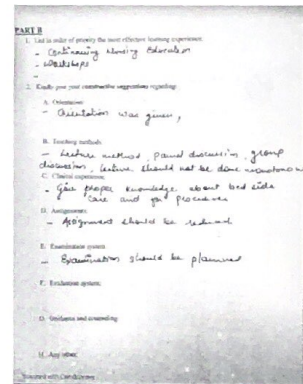 PART B
1. List in order of priority the most effective learning experience:
- Continuing Nursing Education
- Workshops
-
2. Kindly give your constructive suggestions regarding:
A. Orientation:
- Orientation was given,
B. Teaching methods:
- Lecture method, panel discussion, group
discussion, lecture should not be done monotonous
C. Clinical experience:
- Give proper knowledge about bed side
care and procedures
D. Assignments:
- Assignment should be reduced
E. Examination system:
- Examination should be planned
F. Evaluation system:
G. Guidance and counseling:
H. Any other:
Scanned with CamScanner